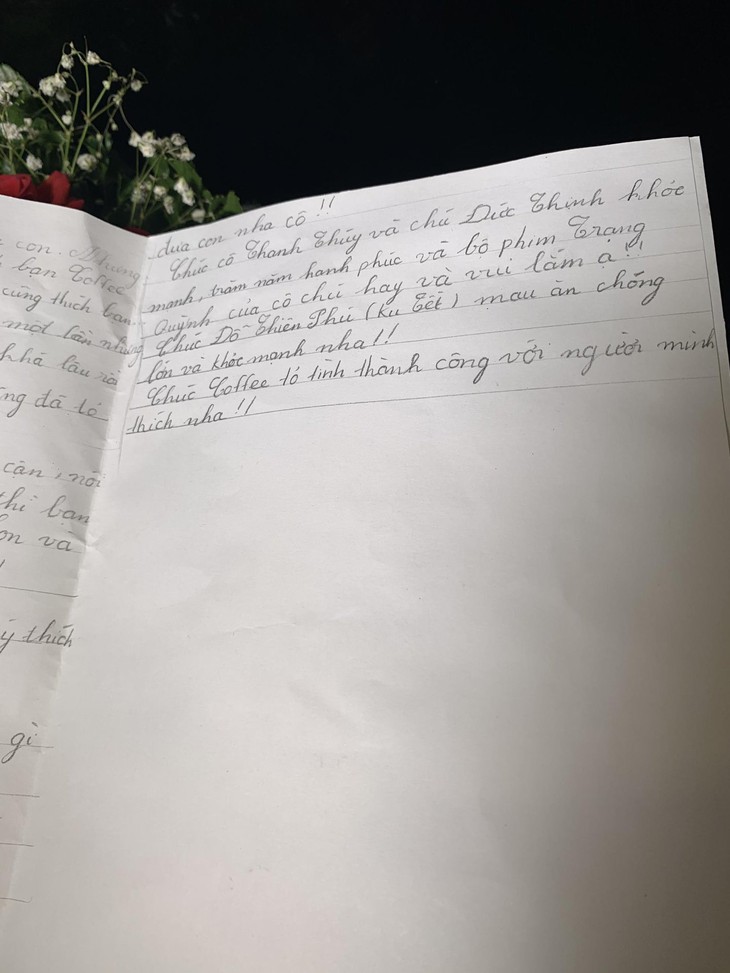 con. Nhưng
bạn Coffee
cũng thích bạn
một lần nhưng
khá lâu rồi
đã tỏ
cận, nói
thì bạn
và
ý thích
gì
dưa con nha cô !!
Chúc cô Thanh Thúy và chú Đức Thịnh khỏe
mạnh, trăm năm hạnh phúc và bộ phim Trạng
Quỳnh của cô chú hay và vui lắm ạ !!
Chúc Đỗ Thiên Phú (Ku Tết) mau ăn chóng
lớn và khỏe mạnh nha !!
Chúc Coffee tỏ tình thành công với người mình
thích nha !!